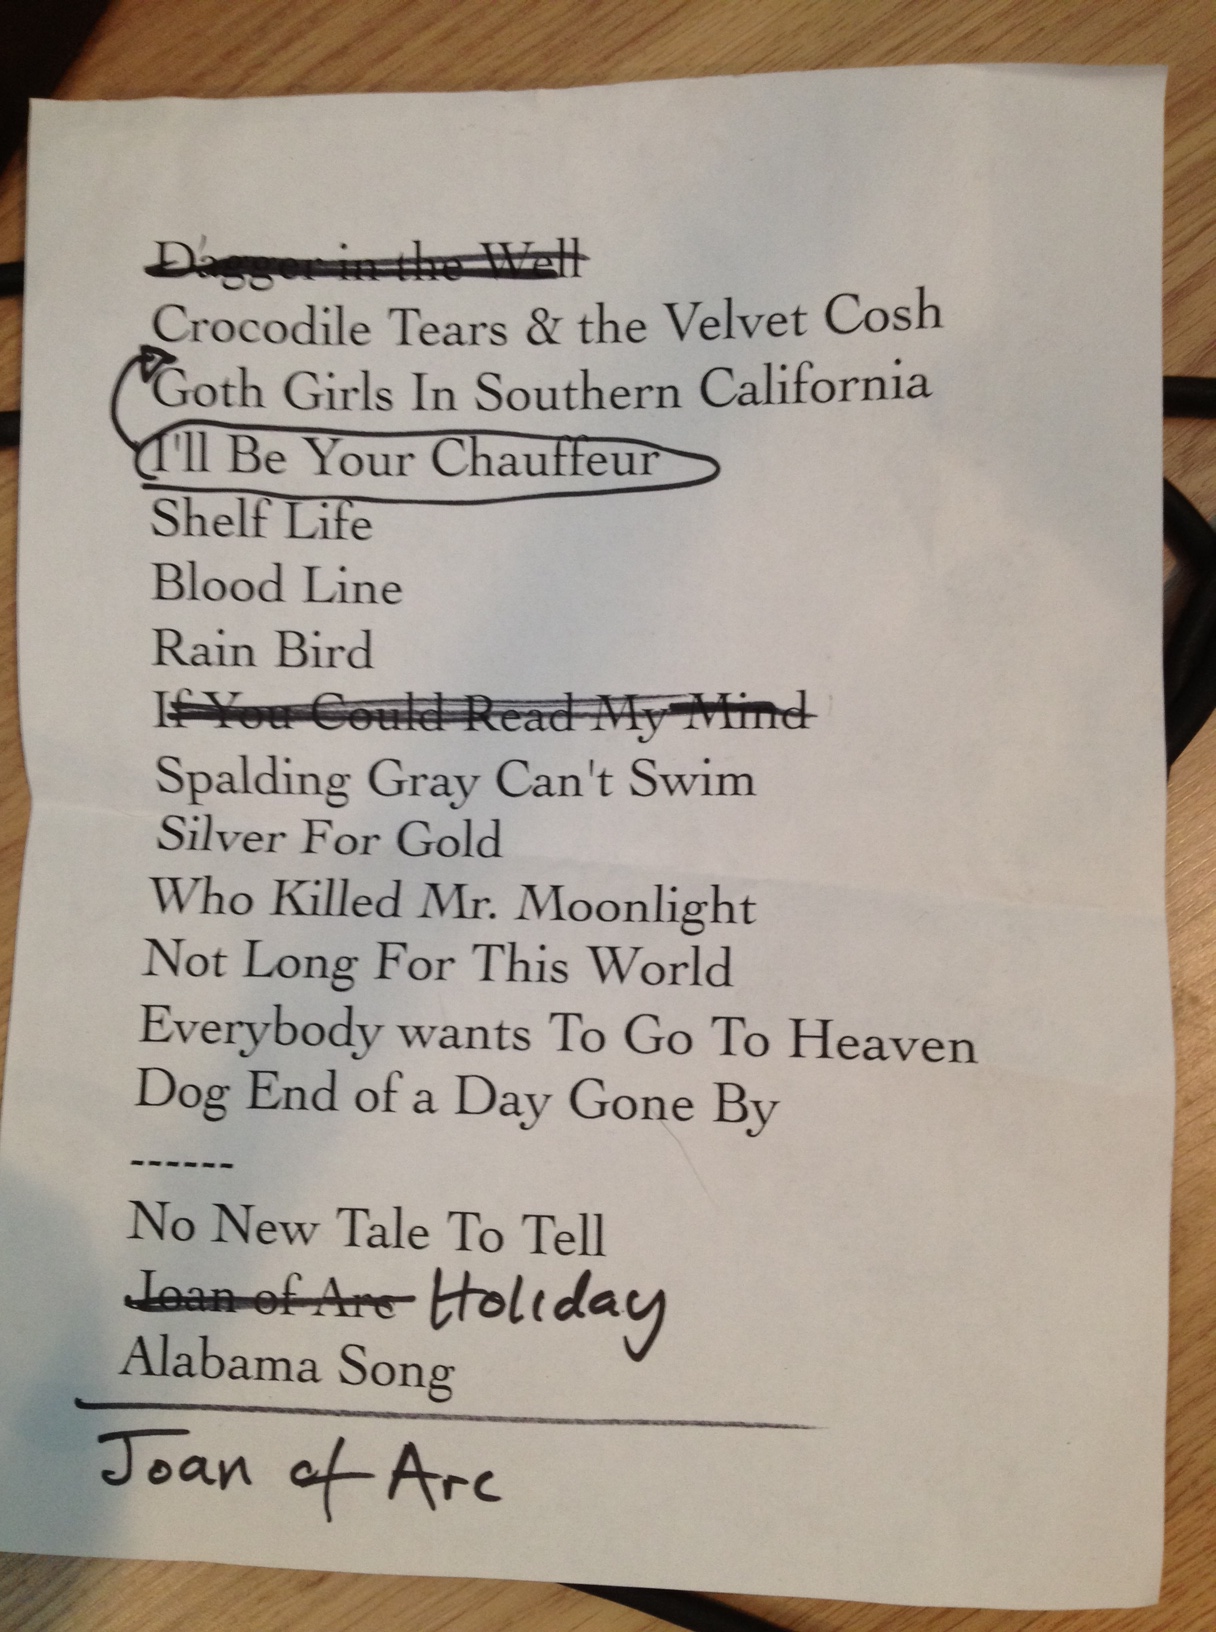 Dagger in the Well
Crocodile Tears & the Velvet Cosh
Goth Girls In Southern California
I'll Be Your Chauffeur
Shelf Life
Blood Line
Rain Bird
If You Could Read My Mind
Spalding Gray Can't Swim
Silver For Gold
Who Killed Mr. Moonlight
Not Long For This World
Everybody wants To Go To Heaven
Dog End of a Day Gone By
------
No New Tale To Tell
Joan of Arc Holiday
Alabama Song
Joan of Arc